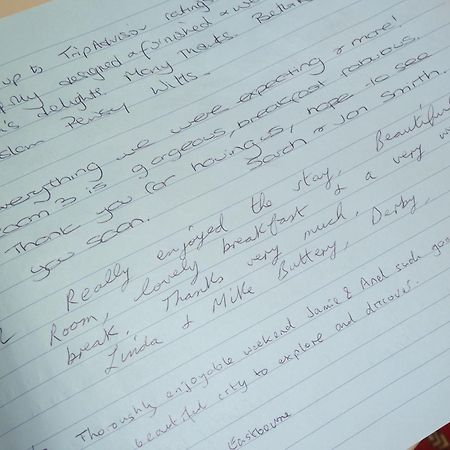 up to TripAdvisor ratings
designed & furnished & a we
delights. Many Thanks.
Pewsey Wilts.
everything we were expecting & more!
Room 3 is gorgeous, breakfast fabulous.
Thank you for having us, hope to see
you soon. Sarah & Jon Smith.
Really enjoyed the stay, Beautiful
Room, lovely breakfast & a very
break. Thanks very much,
Linda & Mike Buttery, Derby.
Thoroughly enjoyable weekend Jamie & And such
beautiful city to explore and discover.
Eastbourne